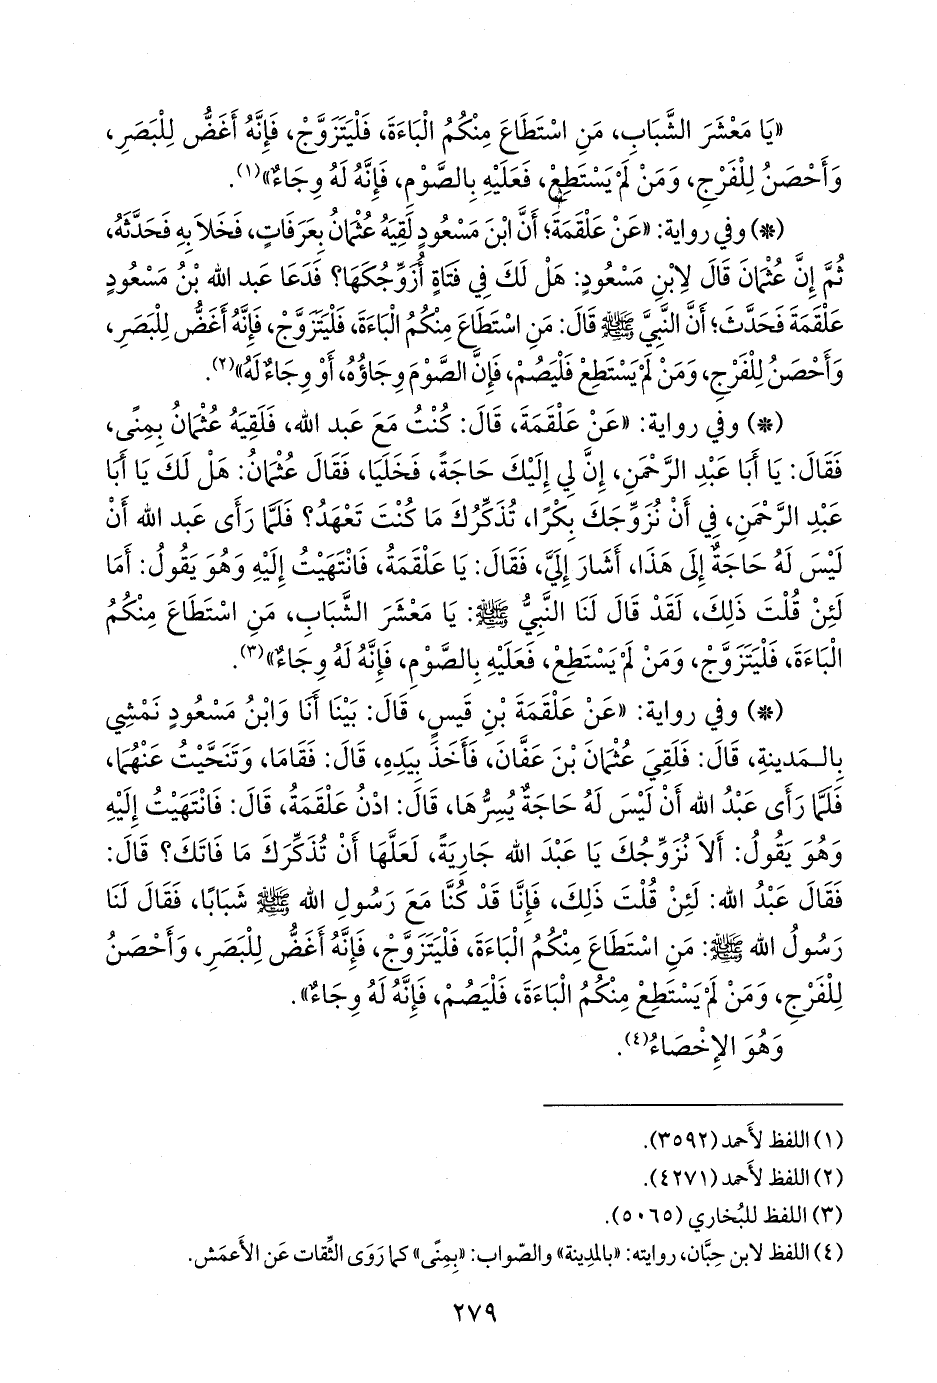 «يَا مَعْشَرَ الشَّبَابِ، مَنِ اسْتَطَاعَ مِنْكُمُ الْبَاءَةَ، فَلْيَتَزَوَّجْ، فَإِنَّهُ أَغَضُّ لِلْبَصَرِ،
وَأَحْصَنُ لِلْفَرْجِ، وَمَنْ لَمْ يَسْتَطِعْ، فَعَلَيْهِ بِالصَّوْمِ، فَإِنَّهُ لَهُ وِجَاءٌ»(١).
(*) وفي رواية: «عَنْ عَلْقَمَةَ؛ أَنَّ ابْنَ مَسْعُودٍ لَقِيَهُ عُثْمَانُ بِعَرَفَاتٍ، فَخَلاَ بِهِ فَحَدَّثَهُ،
ثُمَّ إِنَّ عُثْمَانَ قَالَ لِابْنِ مَسْعُودٍ: هَلْ لَكَ فِي فَتَاةٍ أُزَوِّجُكَهَا؟ فَدَعَا عَبد الله بْنُ مَسْعُودٍ
عَلْقَمَةَ فَحَدَّثَ؛ أَنَّ النَّبِيَّ ﷺ قَالَ: مَنِ اسْتَطَاعَ مِنْكُمُ الْبَاءَةَ، فَلْيَتَزَوَّجْ، فَإِنَّهُ أَغَضُّ لِلْبَصَرِ،
وَأَحْصَنُ لِلْفَرْجِ، وَمَنْ لَمْ يَسْتَطِعْ فَلْيَصُمْ، فَإِنَّ الصَّوْمَ وِجَاؤُهُ، أَوْ وِجَاءٌ لَهُ»(٢).
(*) وفي رواية: «عَنْ عَلْقَمَةَ، قَالَ: كُنْتُ مَعَ عَبد الله، فَلَقِيَهُ عُثْمَانُ بِمِنًى،
فَقَالَ: يَا أَبَا عَبْدِ الرَّحْمَنِ، إِنَّ لِي إِلَيْكَ حَاجَةً، فَخَلَيَا، فَقَالَ عُثْمَانُ: هَلْ لَكَ يَا أَبَا
عَبْدِ الرَّحْمَنِ، فِي أَنْ نُزَوِّجَكَ بِكْرًا، تُذَكِّرُكَ مَا كُنْتَ تَعْهَدُ؟ فَلَمَّا رَأَى عَبد الله أَنْ
لَيْسَ لَهُ حَاجَةٌ إِلَى هَذَا، أَشَارَ إِلَيَّ، فَقَالَ: يَا عَلْقَمَةُ، فَانْتَهَيْتُ إِلَيْهِ وَهُوَ يَقُولُ: أَمَا
لَئِنْ قُلْتَ ذَلِكَ، لَقَدْ قَالَ لَنَا النَّبِيُّ ﷺ: يَا مَعْشَرَ الشَّبَابِ، مَنِ اسْتَطَاعَ مِنْكُمُ
الْبَاءَةَ، فَلْيَتَزَوَّجْ، وَمَنْ لَمْ يَسْتَطِعْ، فَعَلَيْهِ بِالصَّوْمِ، فَإِنَّهُ لَهُ وِجَاءٌ»(٣).
(*) وفي رواية: «عَنْ عَلْقَمَةَ بْنِ قَيسٍ، قَالَ: بَيْنَا أَنَا وَابْنُ مَسْعُودٍ نَمْشِي
بِالـمَدينةِ، قَالَ: فَلَقِيَ عُثْمَانَ بْنَ عَفَّانَ، فَأَخَذَ بِيَدِهِ، قَالَ: فَقَامَا، وَتَنَحَّيْتُ عَنْهُمَا،
فَلَمَّا رَأَى عَبْدُ الله أَنْ لَيْسَ لَهُ حَاجَةٌ يُسِرُّهَا، قَالَ: ادْنُ عَلْقَمَةُ، قَالَ: فَانْتَهَيْتُ إِلَيْهِ
وَهُوَ يَقُولُ: أَلاَ نُزَوِّجُكَ يَا عَبْدَ الله جَارِيَةً، لَعَلَّهَا أَنْ تُذَكِّرَكَ مَا فَاتَكَ؟ قَالَ:
فَقَالَ عَبْدُ الله: لَئِنْ قُلْتَ ذَلِكَ، فَإِنَّا قَدْ كُنَّا مَعَ رَسُولِ الله ﷺ شَبَابًا، فَقَالَ لَنَا
رَسُولُ الله ﷺ: مَنِ اسْتَطَاعَ مِنْكُمُ الْبَاءَةَ، فَلْيَتَزَوَّجْ، فَإِنَّهُ أَغَضُّ لِلْبَصَرِ، وَأَحْصَنُ
لِلْفَرْجِ، وَمَنْ لَمْ يَسْتَطِعْ مِنْكُمُ الْبَاءَةَ، فَلْيَصُمْ، فَإِنَّهُ لَهُ وِجَاءٌ».
وَهُوَ الإِخْصَاءُ(٤).
(١) اللفظ لأَحمد (٣٥٩٢).
(٢) اللفظ لأَحمد (٤٢٧١).
(٣) اللفظ للبُخاري (٥٠٦٥).
(٤) اللفظ لابن حِبَّان، روايته: «بالمدِينة» والصّواب: «بِمِنًى» كما رَوَى الثِّقات عَن الأَعمَش.
٢٧٩